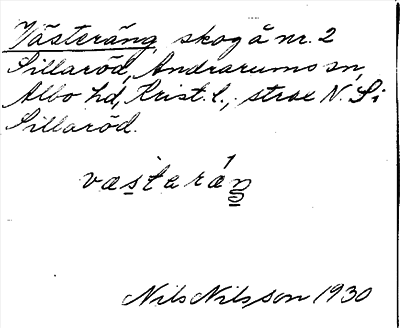 Västeräng, skog å nr. 2
Sillaröd, Andrarums sn,
Albo hd, Krist. l., strax N. Si
Sillaröd.
Nils Nilsson 1930